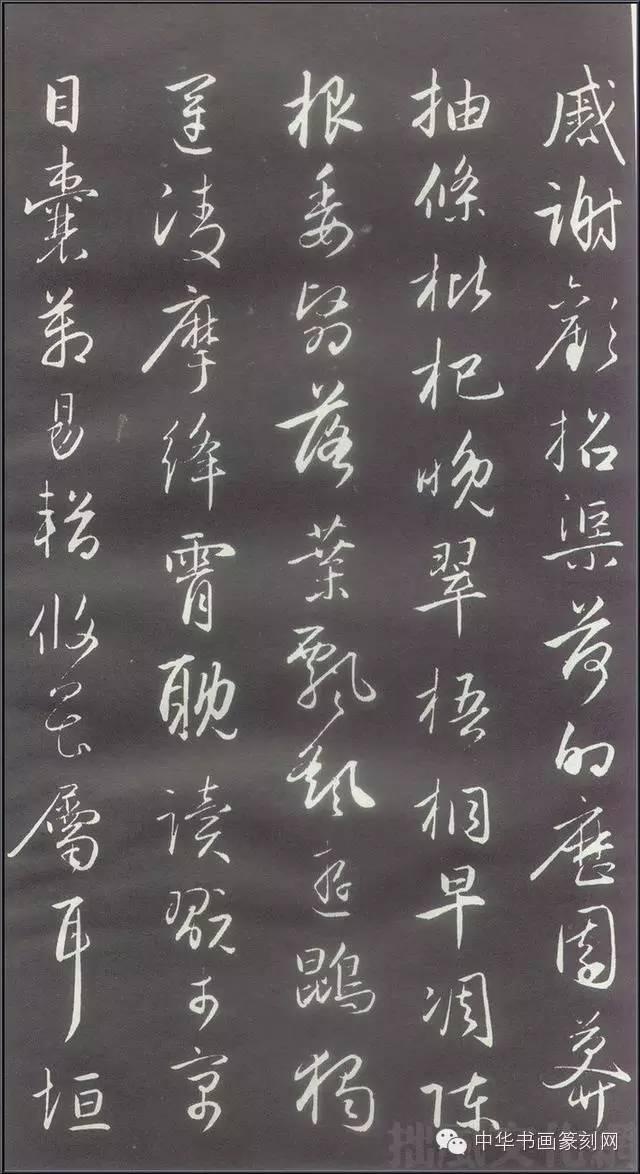 慼謝歡招渠荷的歷園莽
抽條枇杷晚翠梧桐早凋陳
根委翳落葉飄颻遊鵾獨
運凌摩絳霄耽讀翫市寓
目囊箱易輶攸畏屬耳垣
中华书画篆刻网